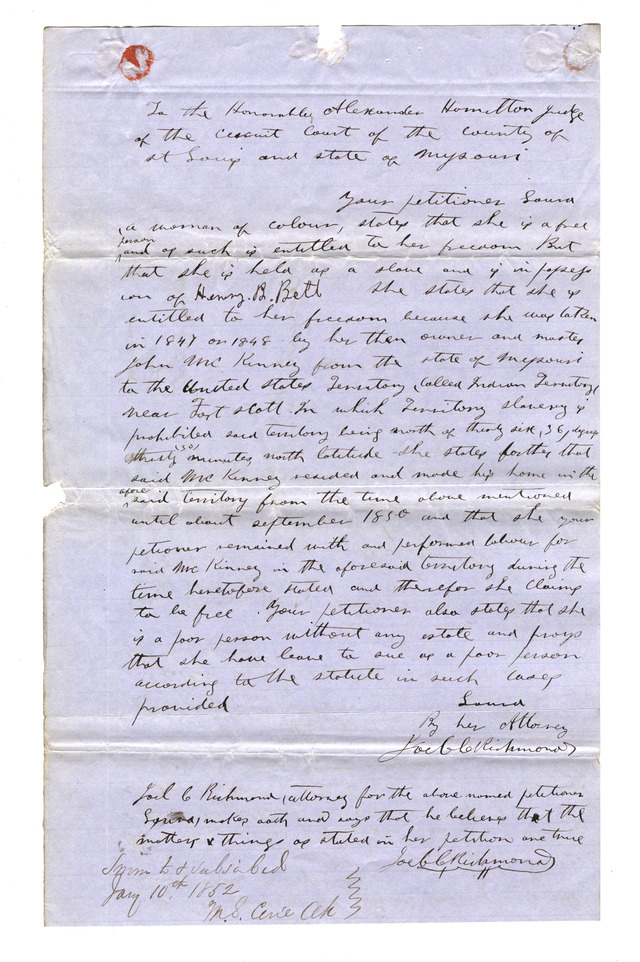 To the Honorable Alexander Hamilton judge
of the circuit Court of the county of
st Louis and state of Myssouri
Your petitioner Laura
a woman of colour, states that she is a free
person
and as such is entitled to her freedom But
that she is held as a slave and is in possess
ion of Henry. B. Belt she states that she is
entitled to her freedom because she was taken
in 1847 or 1848 by her then owner and master
John Mc Kinney from the state of Myssouri
to the United States Territory, called Indian Territory,
near Fort scott. In which Territory slavery is
prohibited said territory being north of thirty six, 36, degrees
thirty (30) minutes, north latitude she states further that
said Mc Kinney resided and made his home in the
afore
said territory from the time above mentioned
until about september 1850 and that she your
petioner remained with and performed labour for
said Mc Kinney in the aforesaid territory during the
time heretofore stated and therefor she claims
to be free. Your petitioner also states that she
is a poor person without any estate and prays
that she have leave to sue as a poor person
according to the statute in such cases
provided Laura
By her Attorney
Joel C Richmond
Joel C Richmond, attorney for the above named petitioner
Laura, makes oath and says that he believes that the
matters & things as stated in her petition are true
Sworn to & subscribed Joel C Richmond
Jany 10th 1852
M. S. Cerré Clk